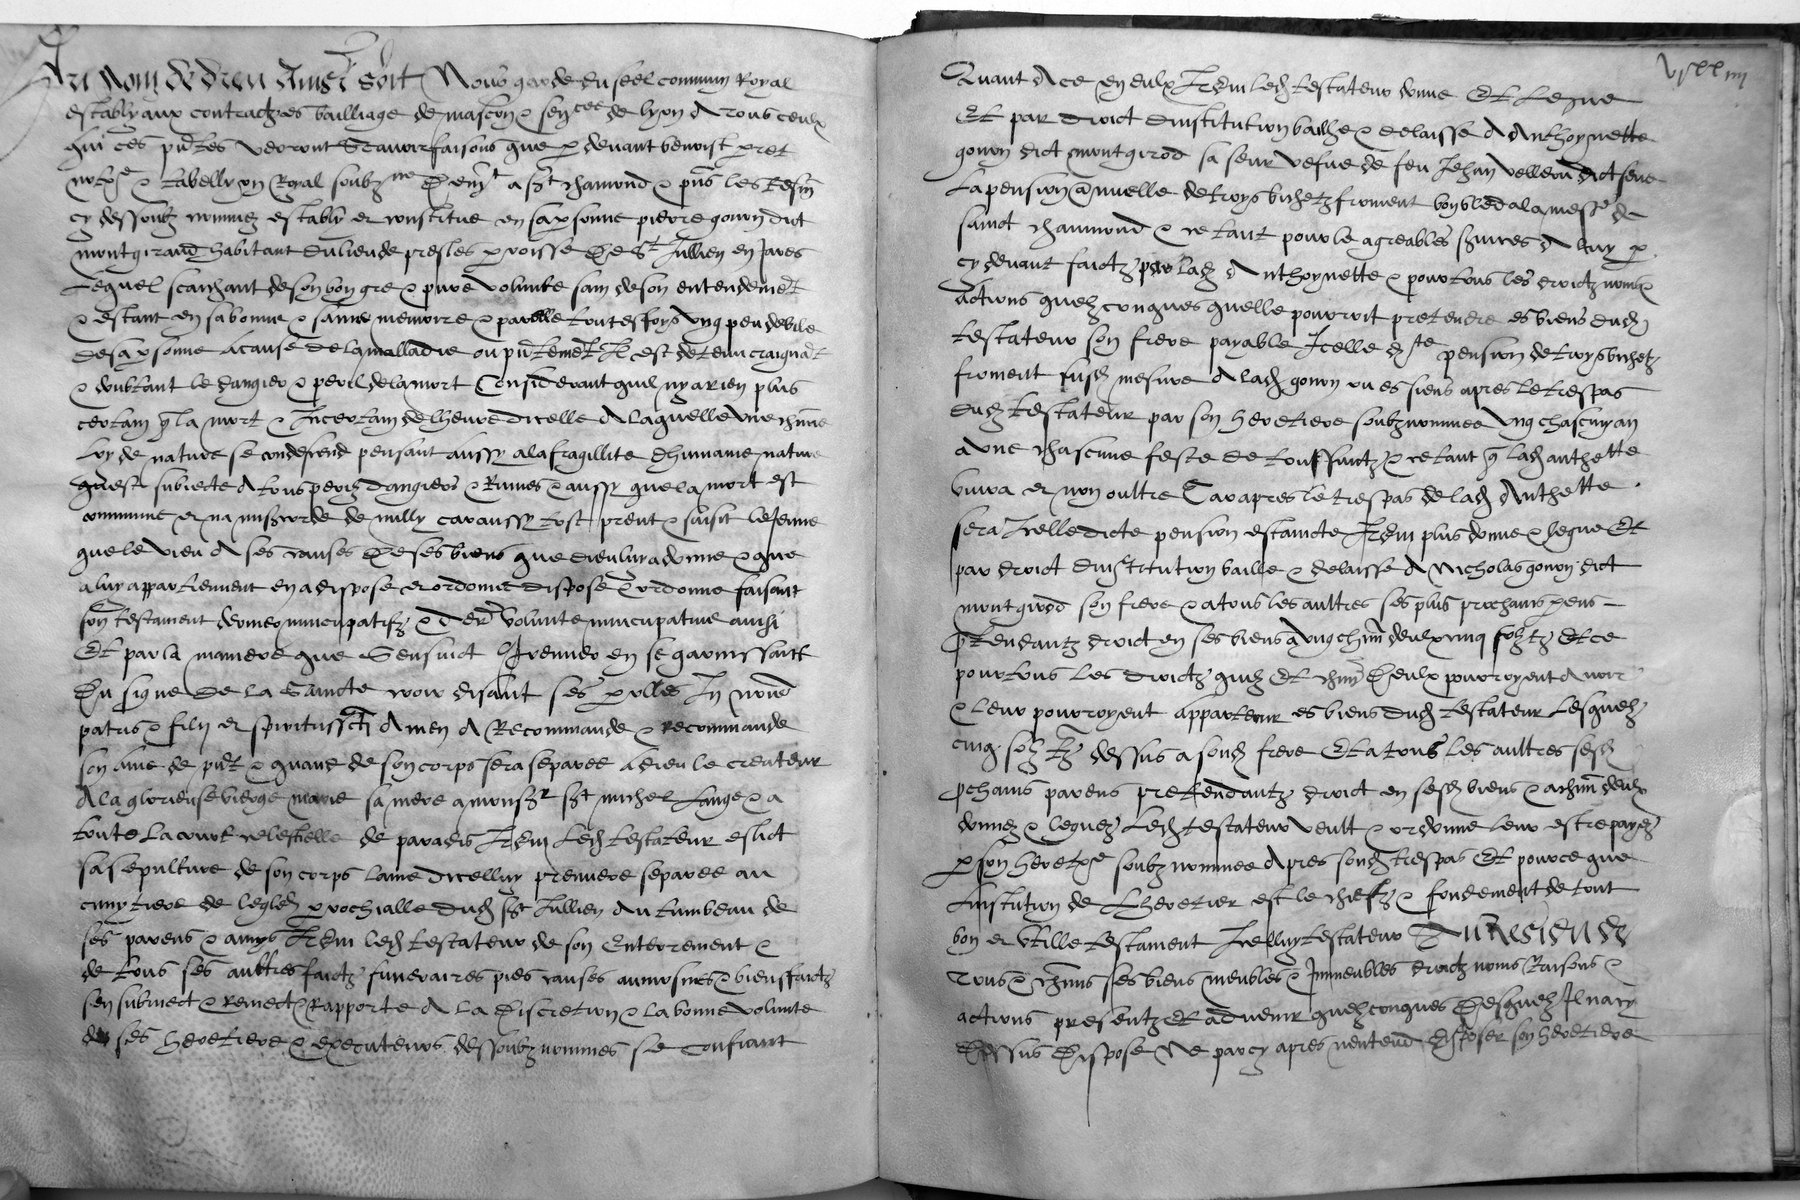 Au nom de dieu Amen soit Nous garde du seel commun Royal
estably aux contractz es bailliage de mascon & senceé de lyon A tous ceulx
qui ces pñtes verront Scavoir faisons que p devant benoist
notre & tabellion Royal soubzne a st chamond & pñs les tesm
cy dessoubz nommez estably et constitue en sa psonne pierre gonon dict
montgiraud habitant du lieu de presles parroisse de St Jullien en Jares
Lequel scaichant de son bon gre & pure volunte sain de son entendemet
& estant en sa bonne & sainne memoire & parolle toutesfoys ung peu debile
de sa psonne a cause de la malladie ou pñtemet Il est detenu craignat
& doubtant le dangier & peril de la mort Considerant quil ny a rien plus
certain q la mort & Incertain de lheure dicelle A laquelle une chune
loy de nature se condescend pensant aussy a la fragillite dhumaine nature
quest subiecte A tous perilz dangiers & Ruines & aussy que la mort est
commune et na mizericorde de nully car aussy tost prent & saisit le Jeune
que le vieu A ses causes de ses biens que dieu luy a donne & que
a luy appartiennent en a dispose et ordonne dispose & ordonne faisant
son testament dernier nuncupatifz & der volunte nuncupative ainsi
Et par la maniere que Sensuict Premier en se garnissant
Du signe de la Saincte croix disant ses parolles In noie
patris & filij et spiritussctj Amen A Recommande & recommande
son ame de pñt & quant de son corps sera separee a dieu le createur
A la glorieuse vierge marie sa mere a monsr st michel Lange & a
toute la court celestielle de paradis Item Led testateur eslict
sa sepulture de son corps lame dicelluy premiere separee au
cimytiere de leglise parrochialle dud st Jullien Au tumbeau de
ses parens & amys Item led testateur de son Enterrement &
de tous ses aultres faictz funeraires pies causes aumosnes & biensfaictz
sen submect & remect & Rapporte A la discretion & la bonne volunte
de ses heretiere & executeurs dessoubz nommes se confiant
Quant A ce en eulx Item led testateur donne Et Legue
Et par droict dinstitution bailhe & delaisse A Anthoynette
gonon dict montgirod sa seur vefve de feu Jehan dict seve
La pension annuelle de troys bichetz froment bon bled a la mesure de
sainct chaumond & ce tant pour le agreables services A luy p
cy devant faictz par lad Anthoynette & pour tous les droictz noms
actions quelzconques quelle pourroit pretendre es biens dud
testateur son frere payable Icelle dte pension de troys bichetz
froment susd mesure A lad gonon ou es siens apres le trespas
Dud testateur par son heretiere soubznommee ung chascun an
a une chascune feste de toussainctz & ce tant q lad anthette
vivra et non oultre Car apres le trespas de lad Anthette
sera Icelle dicte pension estaincte Item plus donne & legue Et
par droict dinstitution baille & delaisse A Nicholas gonon dict
montgirod son frere & a tous les aultres ses plus prochains parens
ptendantz droict en ses biens a ung chun deulx cinq soltz Et ce
pour tous les droictz quilz Et chun deulx pourroyent Avoir
& leur pourroyent appartenir es biens dud testateur Lesquelz
cinq soltz dessus a sond frere Et a tous les aultres sesd
pchains parens pretendantz droict en sesd biens & a chun deulx
donnez & leguez Led testateur veult & ordonne leur estre payez
p son heretiere soubz nommee Apres sond trespas Et pource que
Linstitution de Lheretier est le chiefz & fondement de tout
bon et utille testament Icelluy testateur Au Residu de
tous & chuns ses biens meubles & Immeubles droictz noms Raisons &
actions presentz Et advenir quelzconques Desquelz Il na cy
dessus dispose Ne par cy apres nentend disposer son heretiere